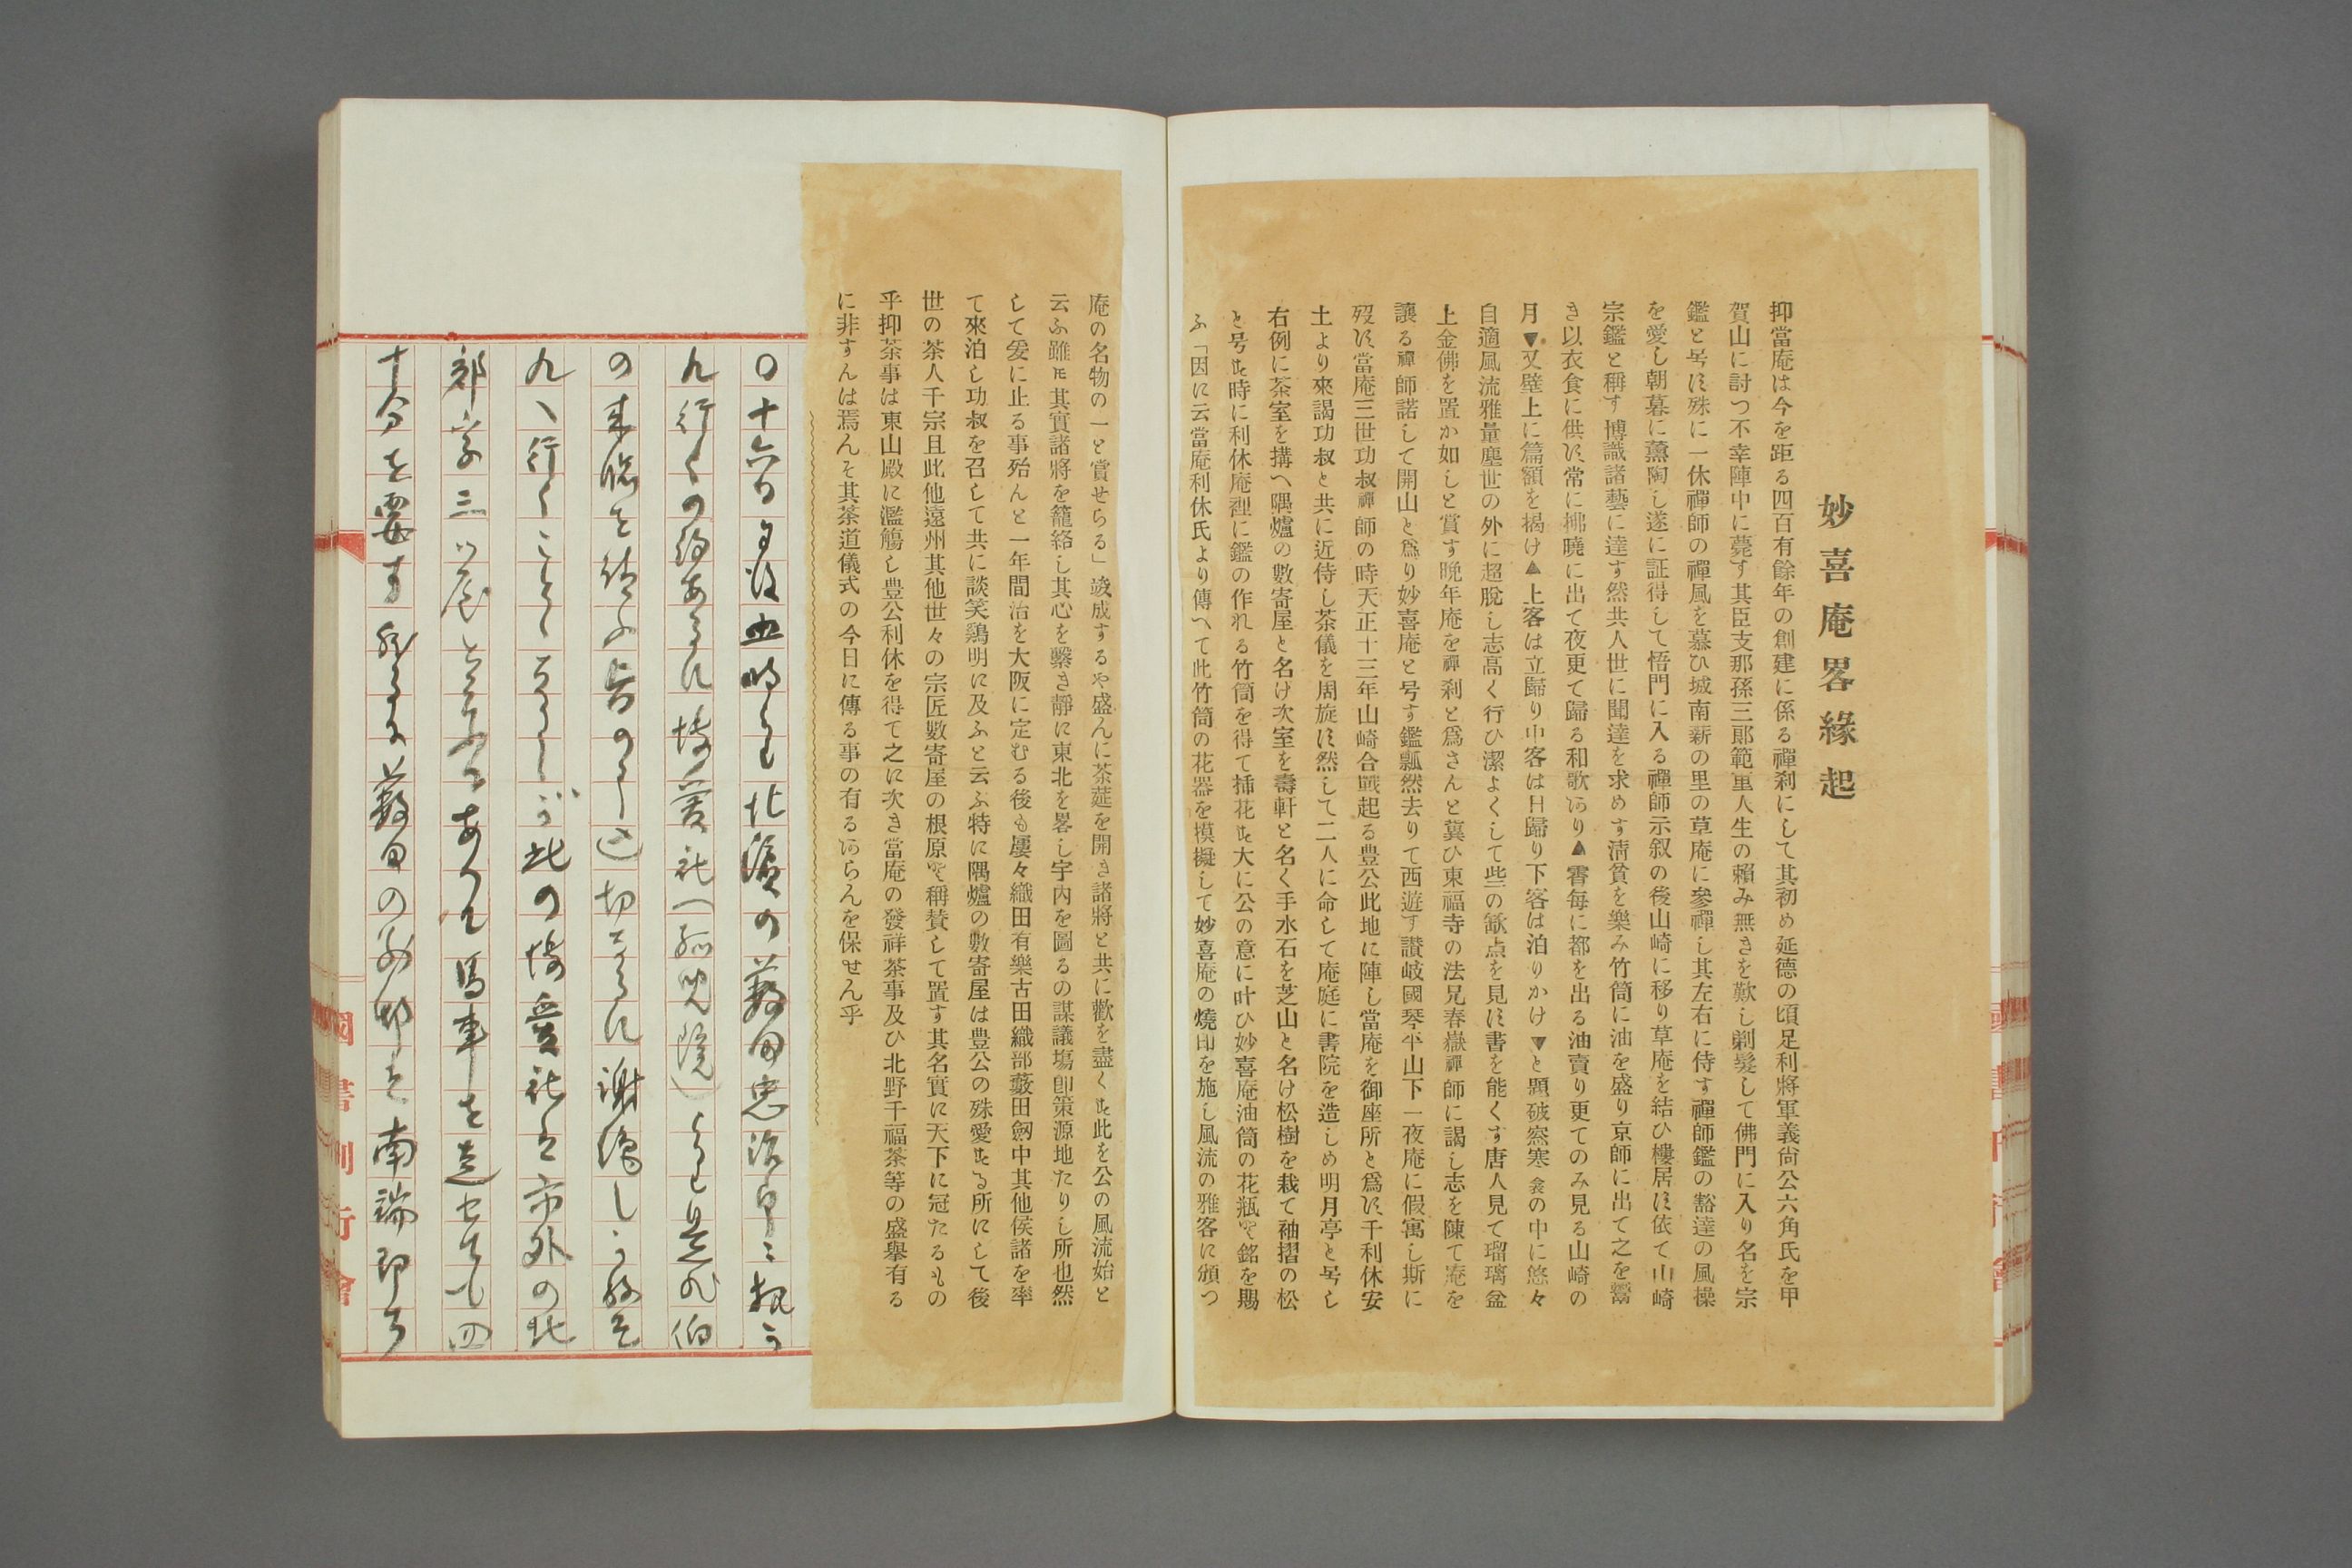 妙喜庵畧緣起
抑當庵は今を距る四百有餘年の創建に係る禪刹にして其初め延德の頃足利將軍義尙公六角氏を甲
賀山に討つ不幸陣中に薨す其臣支那孫三郞範重人生の賴み無きを歎し剃髮して佛門に入り名を宗
鑑と号す殊に一休禪師の禪風を慕ひ城南薪の里の草庵に參禪し其左右に侍す禪師鑑の豁達の風操
を愛し朝暮に薰陶し遂に証得して悟門に入る禪師示叙の後山崎に移り草庵を結ひ樓居す依て山崎
宗鑑と稱す博識諸藝に達す然共人世に聞達を求めす淸貧を樂み竹筒に油を盛り京師に出て之を鬻
き以衣食に供す常に拂曉に出て夜更て歸る和歌あり▲霄每に都を出る油賣り更てのみ見る山崎の
月▼又壁上に篇額を揭け▲上客は立歸り中客は日歸り下客は泊りかけ▼と題破窓寒衾の中に悠々
自適風流雅量塵世の外に超脫し志高く行ひ潔よくして些の缺点を見す書を能くす唐人見て瑠璃盆
上金佛を置か如しと賞す晩年庵を禪刹と爲さんと冀ひ東福寺の法兄春嶽禪師に謁し志を陳て庵を
讓る禪師諾して開山と爲り妙喜庵と号す鑑瓢然去りて西遊す讃岐國琴平山下一夜庵に假寓し斯に
歿す當庵三世功叔禪師の時天正十三年山崎合戰起る豊公此地に陣し當庵を御座所と爲す千利休安
土より來謁功叔と共に近侍し茶儀を周旋す然して二人に命して庵庭に書院を造しめ明月亭と号し
右例に茶室を搆へ隅爐の數寄屋と名け次室を壽軒と名く手水石を芝山と名け松樹を栽て袖摺の松
と号す時に利休庵裡に鑑の作れる竹筒を得て挿花す大に公の意に叶ひ妙喜庵油筒の花瓶と銘を賜
ふ「因に云當庵利休氏より傳へて此竹筒の花器を摸擬して妙喜庵の燒印を施し風流の雅客に頒つ
庵の名物の一と賞せらる」竣成するや盛んに茶莚を開き諸將と共に歡を盡く此を公の風流始と
云ふ雖𪜈其實諸將を籠絡し其心を繫き靜に東北を畧し宇內を圖るの謀議塲卽策源地たりし所也然
して爰に止る事殆んと一年間治を大阪に定むる後も屢々織田有樂古田織部藪田劒中其他侯諸を率
て來泊し功叔を召して共に談笑鷄明に及ふと云ふ特に隅爐の數寄屋は豊公の殊愛する所にして後
世の茶人千宗且此他遠州其他世々の宗匠數寄屋の根原と稱賛して置す其名實に天下に冠たるもの
乎抑茶事は東山殿に濫觴し豊公利休を得て之に次き當庵の發祥茶事及ひ北野千福茶等の盛擧有る
に非すんは焉んそ其茶道儀式の今日に傳る事の有るあらんを保せん乎
〇十六日 北濱の藪田忠治
九行くの約あるに 博愛社(孤児院)
の来臨を
九八行くことゝ 此の博愛社は市外の北
郡字三 あつて馬車を
十分を要す 藪田の 南端
國書刊行會